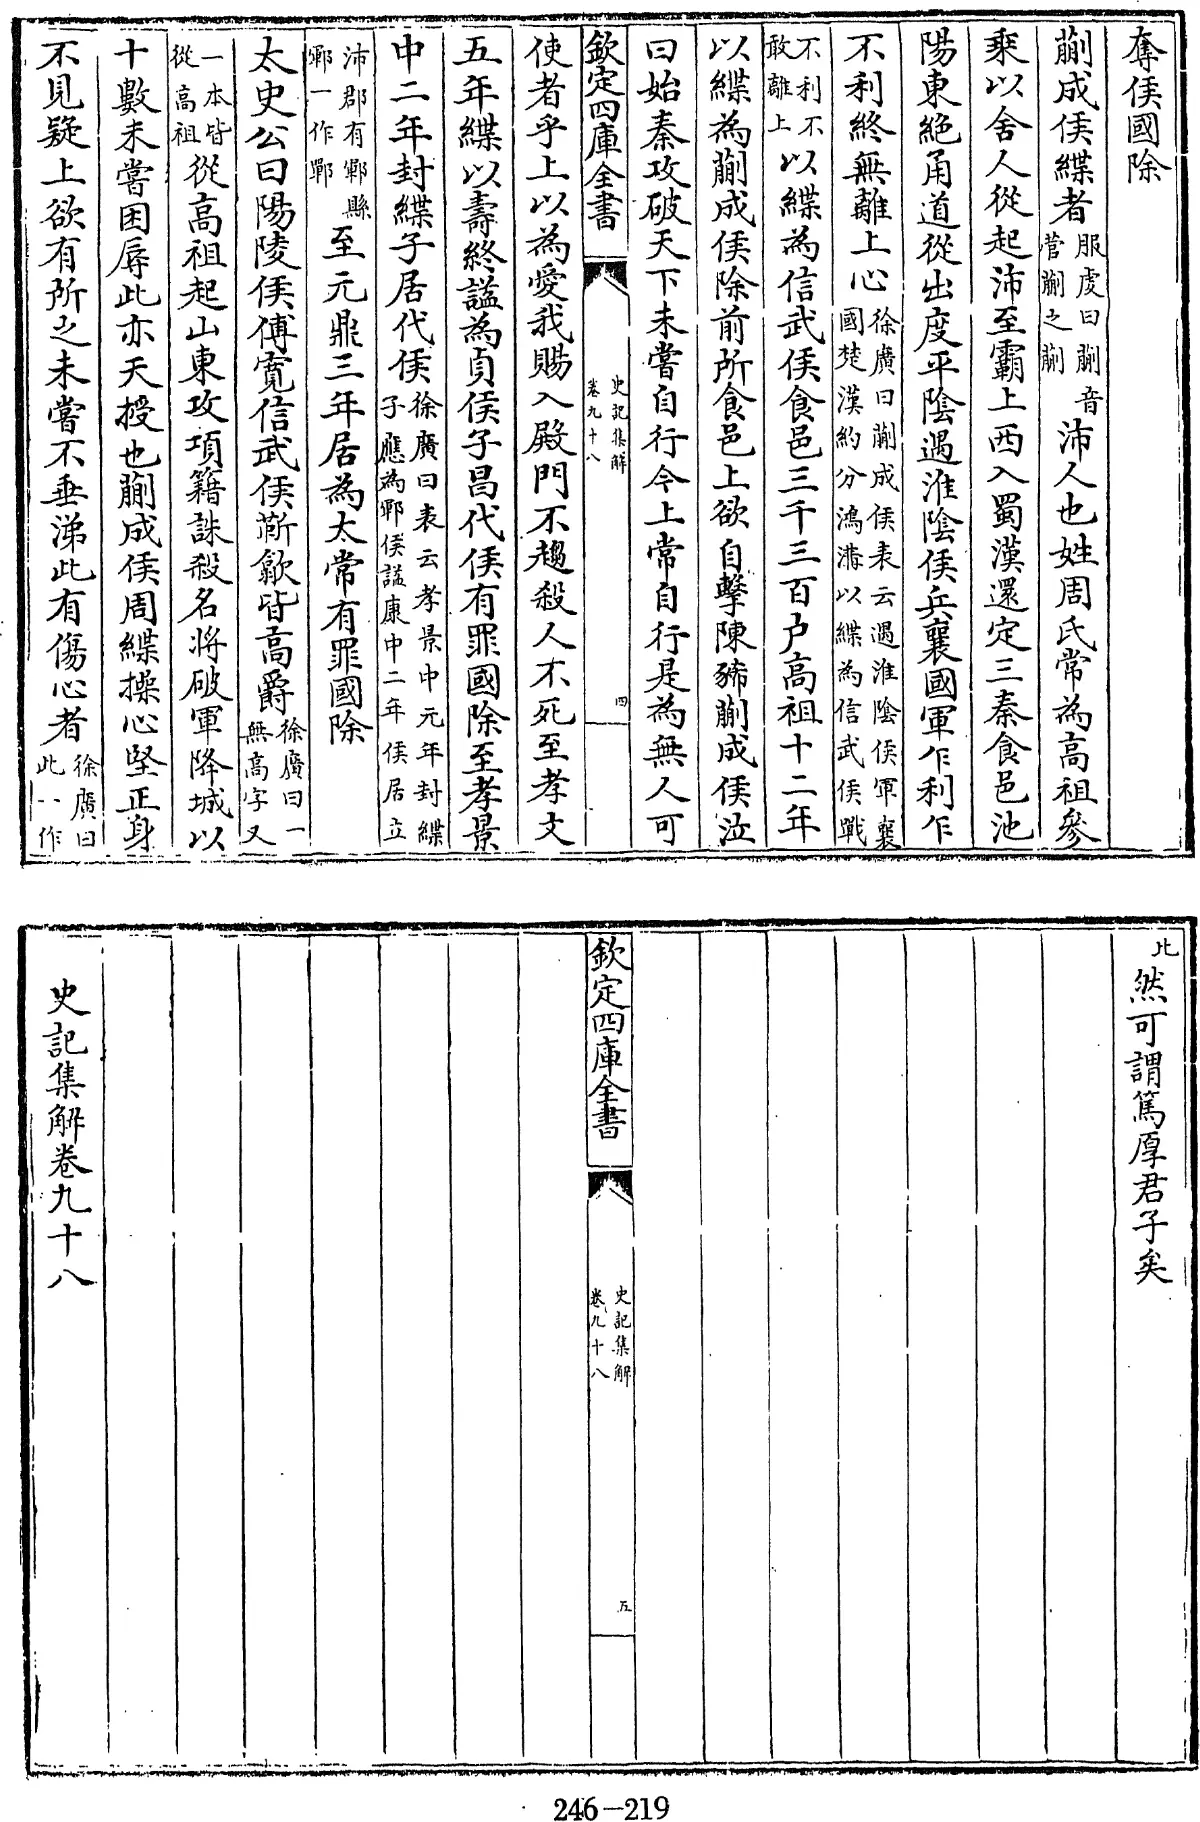 奪侯國除
蒯成侯緤者服虔曰蒯音菅蒯之蒯沛人也姓周氏常為高祖參
乘以舍人從起沛至霸上西入蜀漢還定三秦食邑池
陽東絶甬道從出度平陰遇淮陰侯兵襄國軍乍利乍
不利終無離上心徐廣曰蒯成侯表云遇淮陰侯軍襄國楚漢約分鴻溝以緤為信武侯戰
不利不敢離上以緤為信武侯食邑三千三百户高祖十二年
以緤為蒯成侯除前所食邑上欲自擊陳豨蒯成侯泣
曰始秦攻破天下未嘗自行今上常自行是為無人可
欽定四庫全書
史記集解
卷九十八
四
使者乎上以為愛我賜入殿門不趨殺人不死至孝文
五年緤以壽終謚為貞侯子昌代侯有罪國除至孝景
中二年封緤子居代侯徐廣曰表云孝景中元年封緤子應為鄲侯謚康中二年侯居立
沛郡有鄲縣鄲一作鄲至元鼎三年居為太常有罪國除
太史公曰陽陵侯傅寛信武侯靳歙皆高爵徐廣曰一無高字又
一本皆從高祖從高祖起山東攻項籍誅殺名將破軍降城以
十數未嘗困辱此亦天授也蒯成侯周緤操心堅正身
不見疑上欲有所之未嘗不垂涕此有傷心者徐廣曰此一作
比然可謂篤厚君子矣
欽定四庫全書
史記集解
卷九十八
五
史記集解卷九十八
246—219